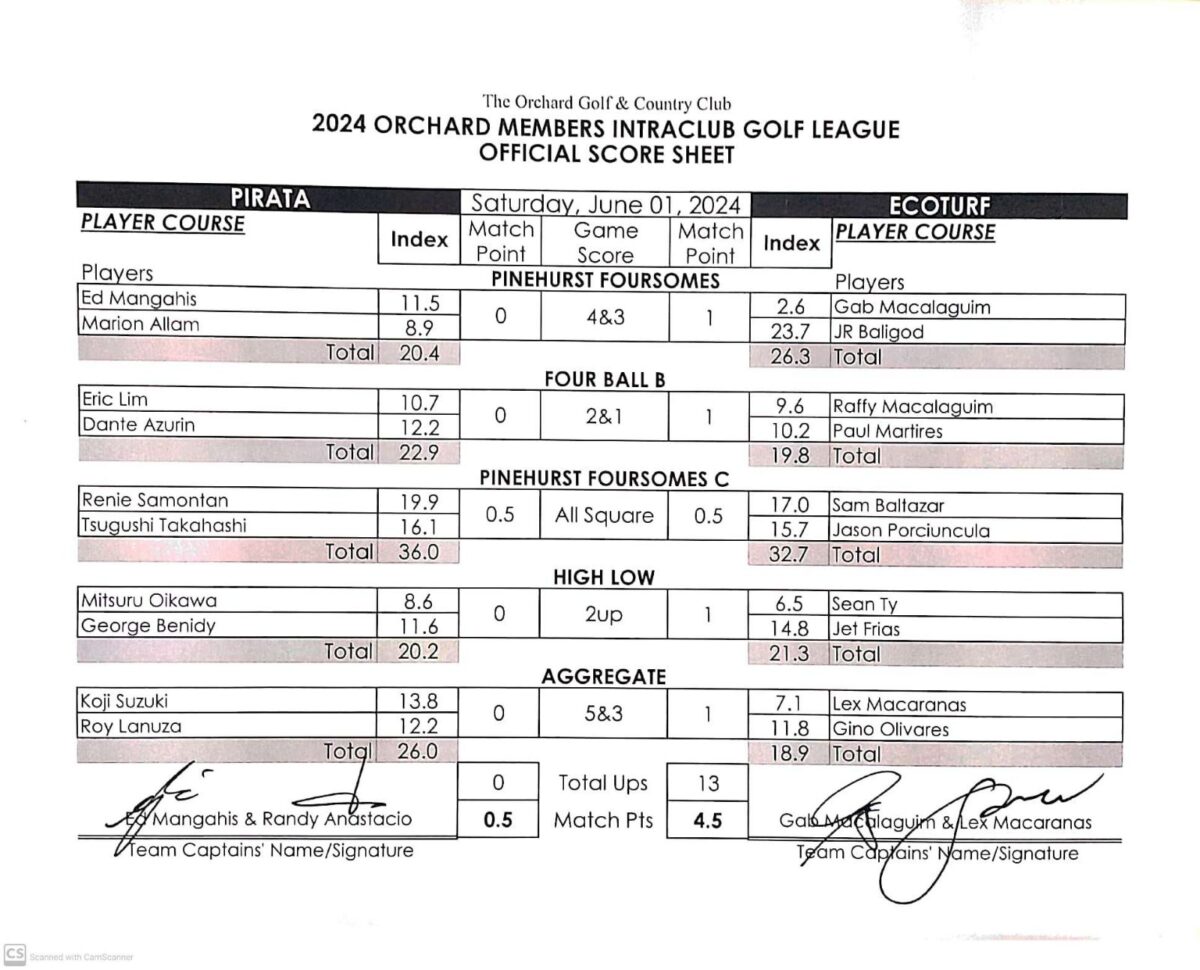 The Orchard Golf & Country Club
2024 ORCHARD MEMBERS INTRACLUB GOLF LEAGUE
OFFICIAL SCORE SHEET
PIRATA Saturday, June 01, 2024 ECOTURF
PLAYER COURSE Index Match Point Game Score Match Point Index PLAYER COURSE
Players PINEHURST FOURSOMES Players
Ed Mangahis 11.5 0 4&3 1 2.6 Gab Macalaguim
Marion Allam 8.9 23.7 JR Baligod
Total 20.4 26.3 Total
FOUR BALL B
Eric Lim 10.7 0 2&1 1 9.6 Raffy Macalaguim
Dante Azurin 12.2 10.2 Paul Martires
Total 22.9 19.8 Total
PINEHURST FOURSOMES C
Renie Samontan 19.9 0.5 All Square 0.5 17.0 Sam Baltazar
Tsugushi Takahashi 16.1 15.7 Jason Porciuncula
Total 36.0 32.7 Total
HIGH LOW
Mitsuru Oikawa 8.6 0 2up 1 6.5 Sean Ty
George Benidy 11.6 14.8 Jet Frias
Total 20.2 21.3 Total
AGGREGATE
Koji Suzuki 13.8 0 5&3 1 7.1 Lex Macaranas
Roy Lanuza 12.2 11.8 Gino Olivares
Total 26.0 18.9 Total
0 Total Ups 13
Ed Mangahis & Randy Anastacio 0.5 Match Pts 4.5 Gab Macalaguim & Lex Macaranas
Team Captains' Name/Signature Team Captains' Name/Signature
CS Scanned with CamScanner